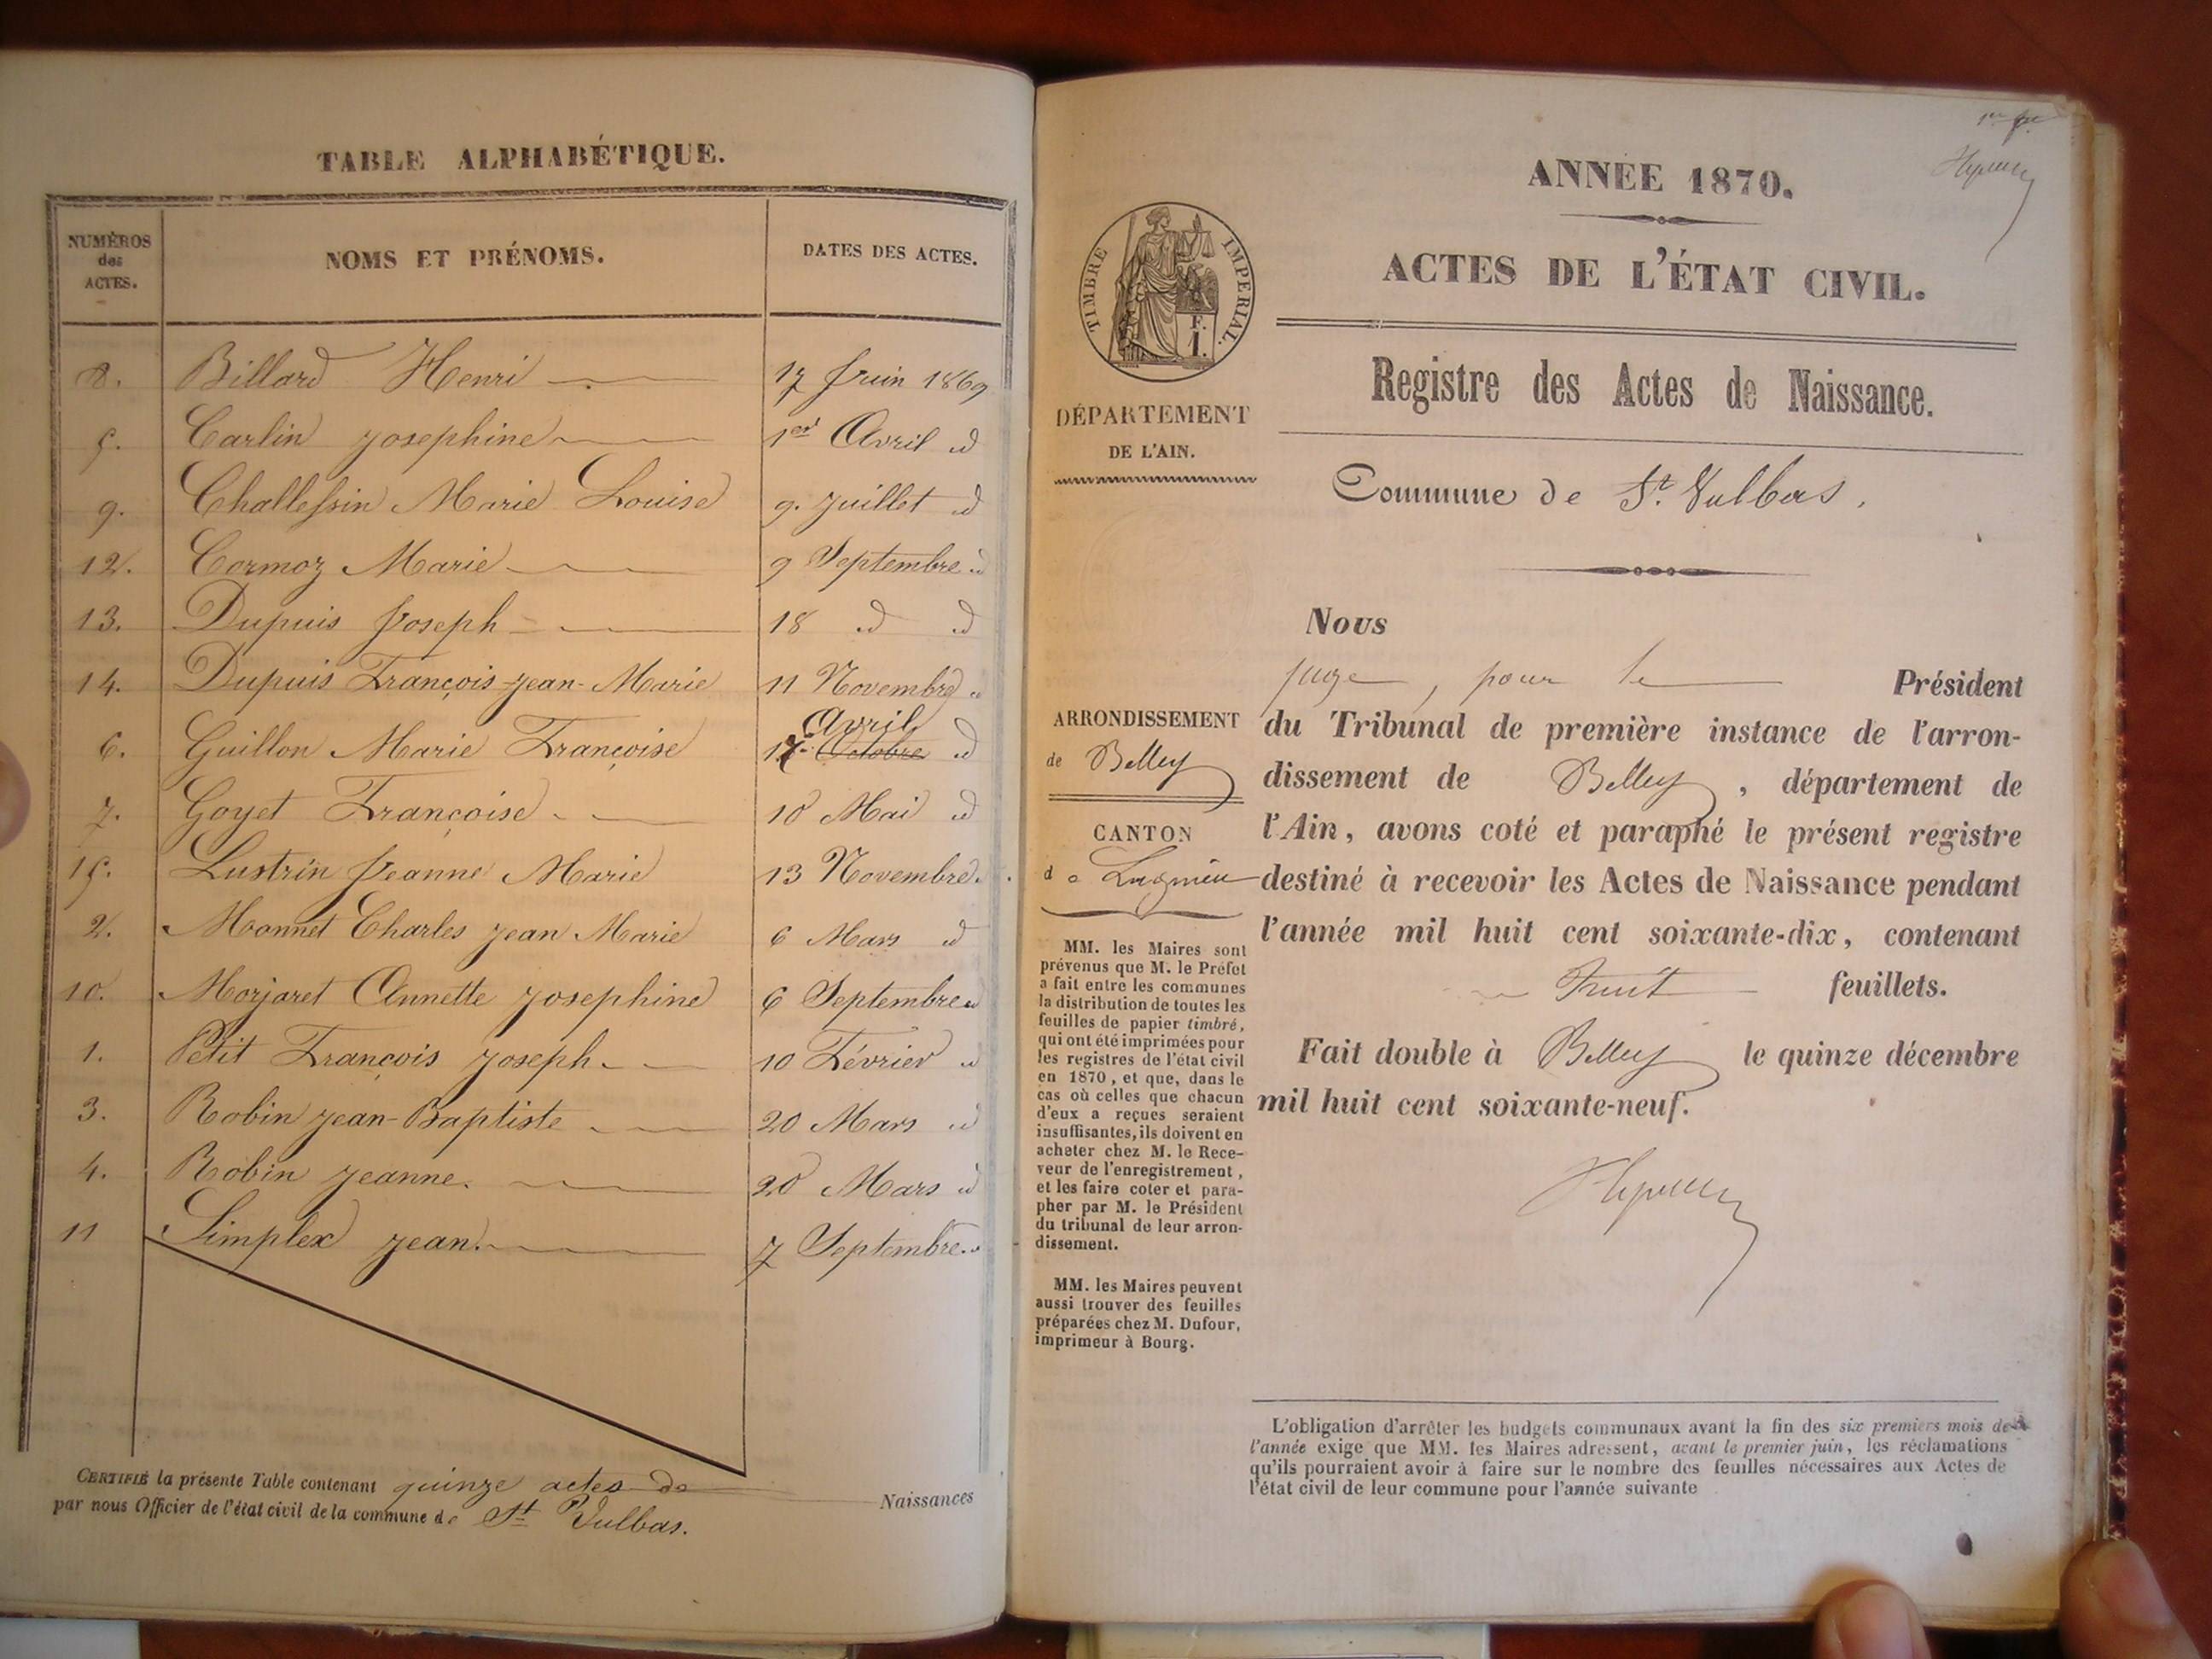 TABLE ALPHABÉTIQUE.
NUMÉROS
des
ACTES.
NOMS ET PRÉNOMS.
DATES DES ACTES.
8. Billard Henri 17 Juin 1869
5. Carlin Josephine 1er Avril d
9. Challessin Marie Louise 9. Juillet d
12. Cormoz Marie 9 Septembre d
13. Dupuis Joseph 18 d d
14. Dupuis François-Jean-Marie 11 Novembre d
Avril
6. Guillon Marie Françoise 17 Octobre d
7. Goyet Françoise 10 Mai d
15. Lustrin Jeanne Marie 13 Novembre d
2. Monnet Charles Jean Marie 6 Mars d
10. Morjaret Annette Josephine 6 Septembre d
1. Petit François Joseph 10 Février d
3. Robin Jean-Baptiste 20 Mars d
4. Robin Jeanne. 20 Mars d
11 Simplex Jean. 7 Septembre d
CERTIFIÉ la présente Table contenant quinze actes de Naissances
par nous Officier de l'état civil de la commune de St Vulbas.
ANNÉE 1870.
ACTES DE L'ÉTAT CIVIL.
Registre des Actes de Naissance.
Commune de St. Vulbas.
TIMBRE IMPERIAL.
F.
1.
DÉPARTEMENT
DE L'AIN.
ARRONDISSEMENT
de Belley
CANTON
de Lagnieu
MM. les Maires sont
prévenus que M. le Préfet
a fait entre les communes
la distribution de toutes les
feuilles de papier timbré,
qui ont été imprimées pour
les registres de l'état civil
en 1870, et que, dans le
cas où celles que chacun
d'eux a reçues seraient
insuffisantes, ils doivent en
acheter chez M. le Rece-
veur de l'enregistrement,
et les faire coter et para-
pher par M. le Président
du tribunal de leur arron-
dissement.
MM. les Maires peuvent
aussi trouver des feuilles
préparées chez M. Dufour,
imprimeur à Bourg.
Nous
juge, pour le Président
du Tribunal de première instance de l'arron-
dissement de Belley, département de
l'Ain, avons coté et paraphé le présent registre
destiné à recevoir les Actes de Naissance pendant
l'année mil huit cent soixante-dix, contenant
feuillets.
Fait double à Belley le quinze décembre
mil huit cent soixante-neuf.
L'obligation d'arrêter les budgets communaux avant la fin des six premiers mois de
l'année exige que MM. les Maires adressent, avant le premier juin, les réclamations
qu'ils pourraient avoir à faire sur le nombre des feuilles nécessaires aux Actes de
l'état civil de leur commune pour l'année suivante